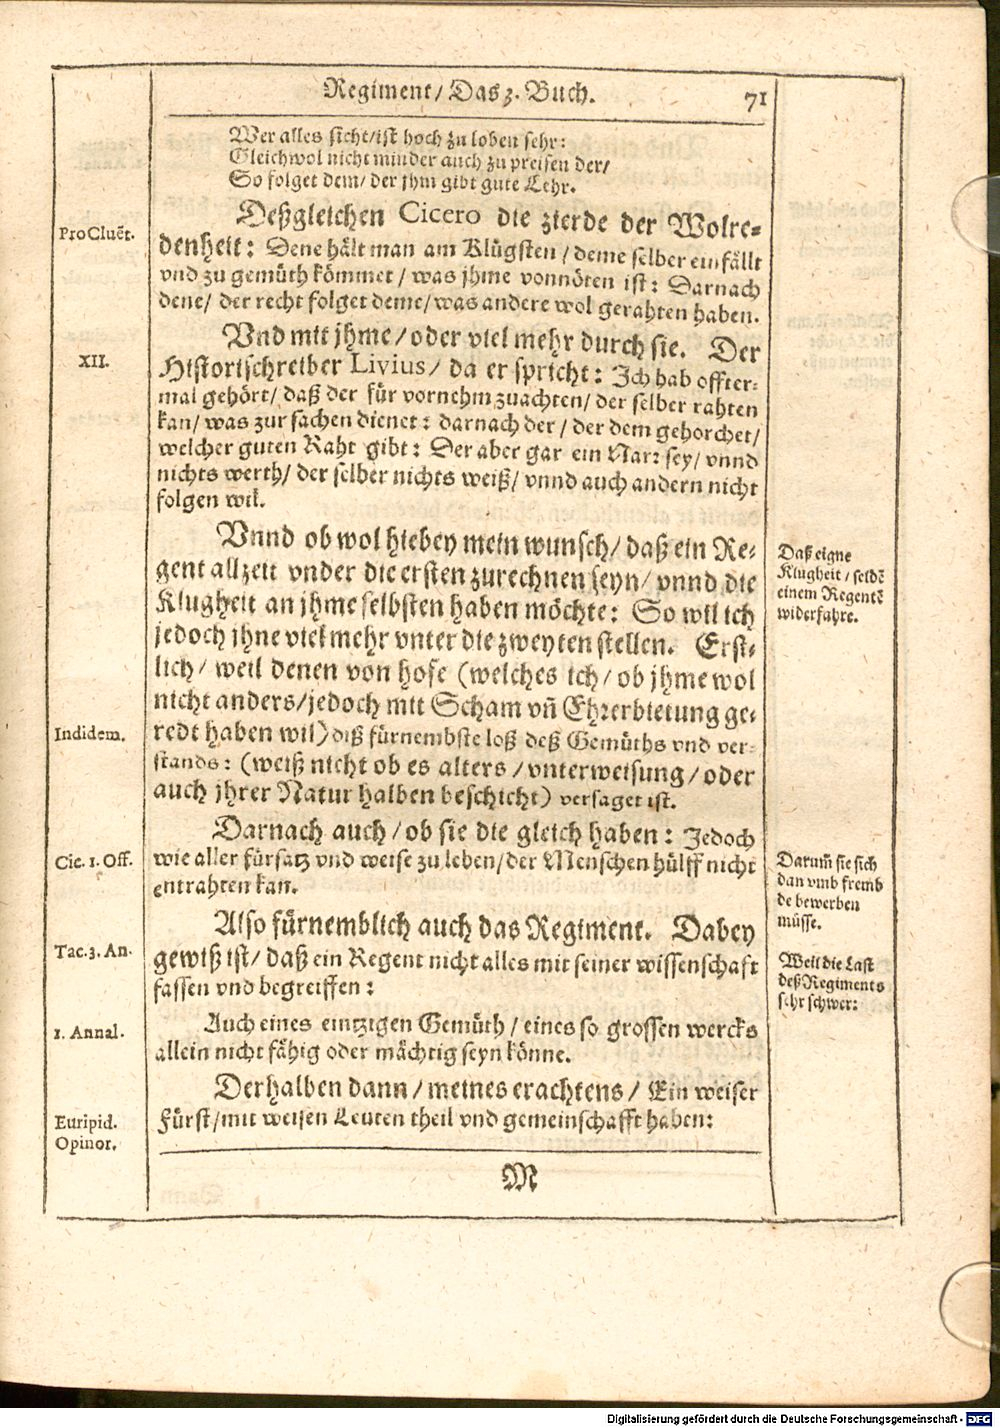 Regiment/ Das 3. Buch. 71
Wer alles sicht/ist hoch zu loben sehr:
Gleichwol nicht minder auch zu preisen der/
So folget dem/ der jhm gibt gute Lehr.
Pro Cluẽt.
Deßgleichen Cicero die zierde der Wolre-
denheit: Dene hält man am Klügsten/ deme selber einfällt
vnd zu gemüth kömmet/ was jhme vonnöten ist: Darnach
dene/ der recht folget deme/ was andere wol gerahten haben.
Vnd mit jhme/ oder viel mehr durch sie. Der
XII.
Historischreiber Livius/ da er spricht: Jch hab offter-
mal gehört/ daß der für vornehm zuachten/ der selber rahten
kan/ was zur sachen dienet: darnach der/ der dem gehorchet/
welcher guten Raht gibt: Der aber gar ein Narr sey/ vnnd
nichts werth/ der selber nichts weiß/ vnnd auch andern nicht
folgen wil.
Vnnd ob wol hiebey mein wunsch/ daß ein Re-
gent allzeit vnder die ersten zurechnen seyn/ vnnd die
Klugheit an jhme selbsten haben möchte: So wil ich
jedoch jhne viel mehr vnter die zweyten stellen. Erst-
lich/ weil denen von hofe (welches ich/ ob jhme wol
nicht anders/jedoch mit Scham vñ Ehrerbietung ge-
redt haben wil) diß fürnembste loß deß Gemüths vnd ver-
stands: (weiß nicht ob es alters/ vnterweisung/ oder
auch jhrer Natur halben beschicht) versaget ist.
Daß eigne
Klugheit/ seldẽ
einem Regentẽ
widerfahre.
Indidem.
Darnach auch/ ob sie die gleich haben: Jedoch
wie aller fürsatz vnd weise zu leben/ der Menschen hülff nicht
entrahten kan.
Cic. 1. Off.
Darum̃ sie sich
dan vmb fremb
de bewerben
müsse.
Also fürnemblich auch das Regiment. Dabey
gewiß ist/ daß ein Regent nicht alles mit seiner wissenschaft
fassen vnd begreiffen:
Tac. 3. An.
Weil die Last
deß Regiments
sehr schwer:
Auch eines eintzigen Gemüth/ eines so grossen wercks
allein nicht fähig oder mächtig seyn könne.
1. Annal.
Derhalben dann/ meines erachtens/ Ein weiser
Fürst/ mit weisen Leuten theil vnd gemeinschafft haben:
Euripid.
Opinor.
M
Digitalisierung gefördert durch die Deutsche Forschungsgemeinschaft - DFG